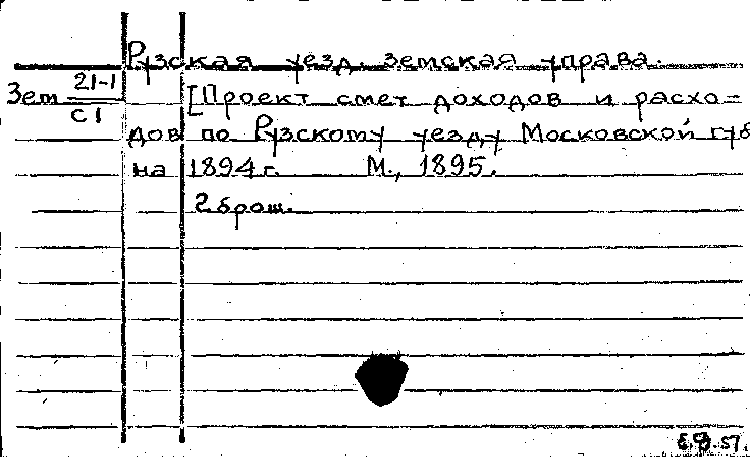 Рузская уезд. земская управа.
Зем 21-1
С 1
[Проект смет доходов и расхо-
дов по Рузскому уезду Московской губ
на 1894 г. М., 1895.
2 брош.
57.